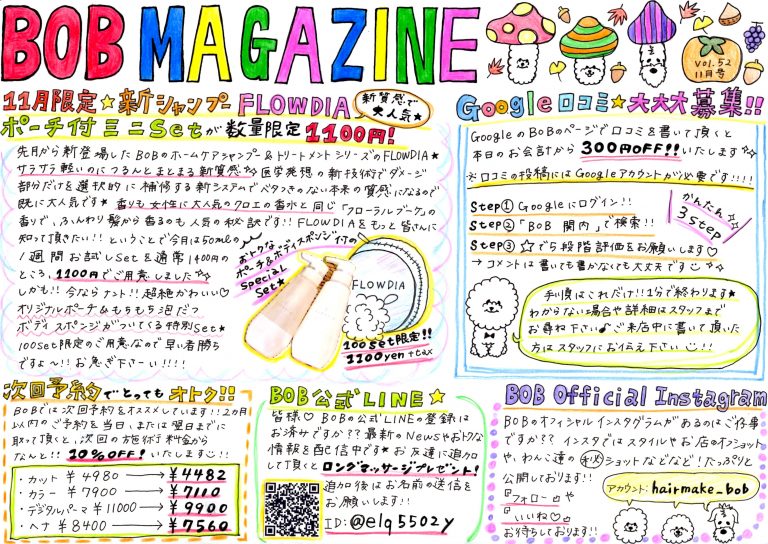 BOB MAGAZINE
Vol.52
11月号
11月限定☆新シャンプーFLOWDIA♪
新質感で
大人気☆
ポーチ付ミニSetが数量限定1100円!
先月から新登場したBOBのホームケアシャンプー&トリートメントシリーズのFLOWDIA★
サラサラ軽いのにつるんとまとまる新質感☆ 医学発想の新技術でダメージ
部分だけを選択的に補修する新システムでベタつきのない本来の質感になるので
既に大人気です★ 香りも女性に大人気のクロエの香水と同じ「フローラルブーケ」の
香りで、ふんわり髪から香るのも人気の秘訣です!! FLOWDIAをもっと皆さんに
知って頂きたい!! ということで今月は50mlの
1週間お試しSetを通常1400円の
ところ、1100円でご用意しました☆
しかも!! 今ならナント!! 超絶かわいい♡
オリジナルポーチ&もちもち泡だつ
ボディスポンジがついてくる特別Set★
100Set限定のご用意なので早い者勝ち
ですよ〜!! お急ぎ下さい!!!!
おトクな
ポーチ&ボディスポンジ付の
Special
Set★
FLOWDIA
100set限定!!
1100yen +tax
Google口コミ★大大大募集!!
GoogleのBOBのページで口コミを書いて頂くと
本日のお会計から300円OFF!!いたします☆
※口コミの投稿にはGoogleアカウントが必要です!!!!
Step① Googleにログイン!!
Step②「BOB 関内」で検索!!
Step③ ☆で5段階評価をお願いします♡
→コメントは書いても書かなくても大丈夫です☺☆
かんたん☆
3Step
手順はこれだけ!! 1分で終わります★
わからない場合や詳細はスタッフまで
お尋ね下さい♪ ご来店中に書いて頂いた
方はスタッフにお伝え下さい☺!!
次回予約でとってもオトク!!
BOBでは次回予約をオススメしています!! 2カ月
以内のご予約を当日、または翌日までに
取って頂くと、次回の施術料金から
なんと!! 10%OFF! いたします☺
・カット ¥4980 → ¥4482
・カラー ¥7900 → ¥7110
・デジタルパーマ ¥11000 → ¥9900
・ヘナ ¥8400 → ¥7560
BOB公式LINE★
皆様♡ BOBの公式LINEの登録は
お済みですか?? 最新のNewsやおトクな
情報を配信中です★ お友達に追加
して頂くとロングマッサージプレゼント!
追加後はお名前の送信を
お願いします!!
ID:@elq5502y
BOB Official Instagram
BOBのオフィシャルインスタグラムがあるのはご存事
ですか?? インスタではスタイルやお店のオフショット
や、わんこ達の㊙ショットなどなど!たっぷりと
公開しております!!
『フォロー』や
『いいね♡』
お待ちしております!!
アカウント:hairmake_bob